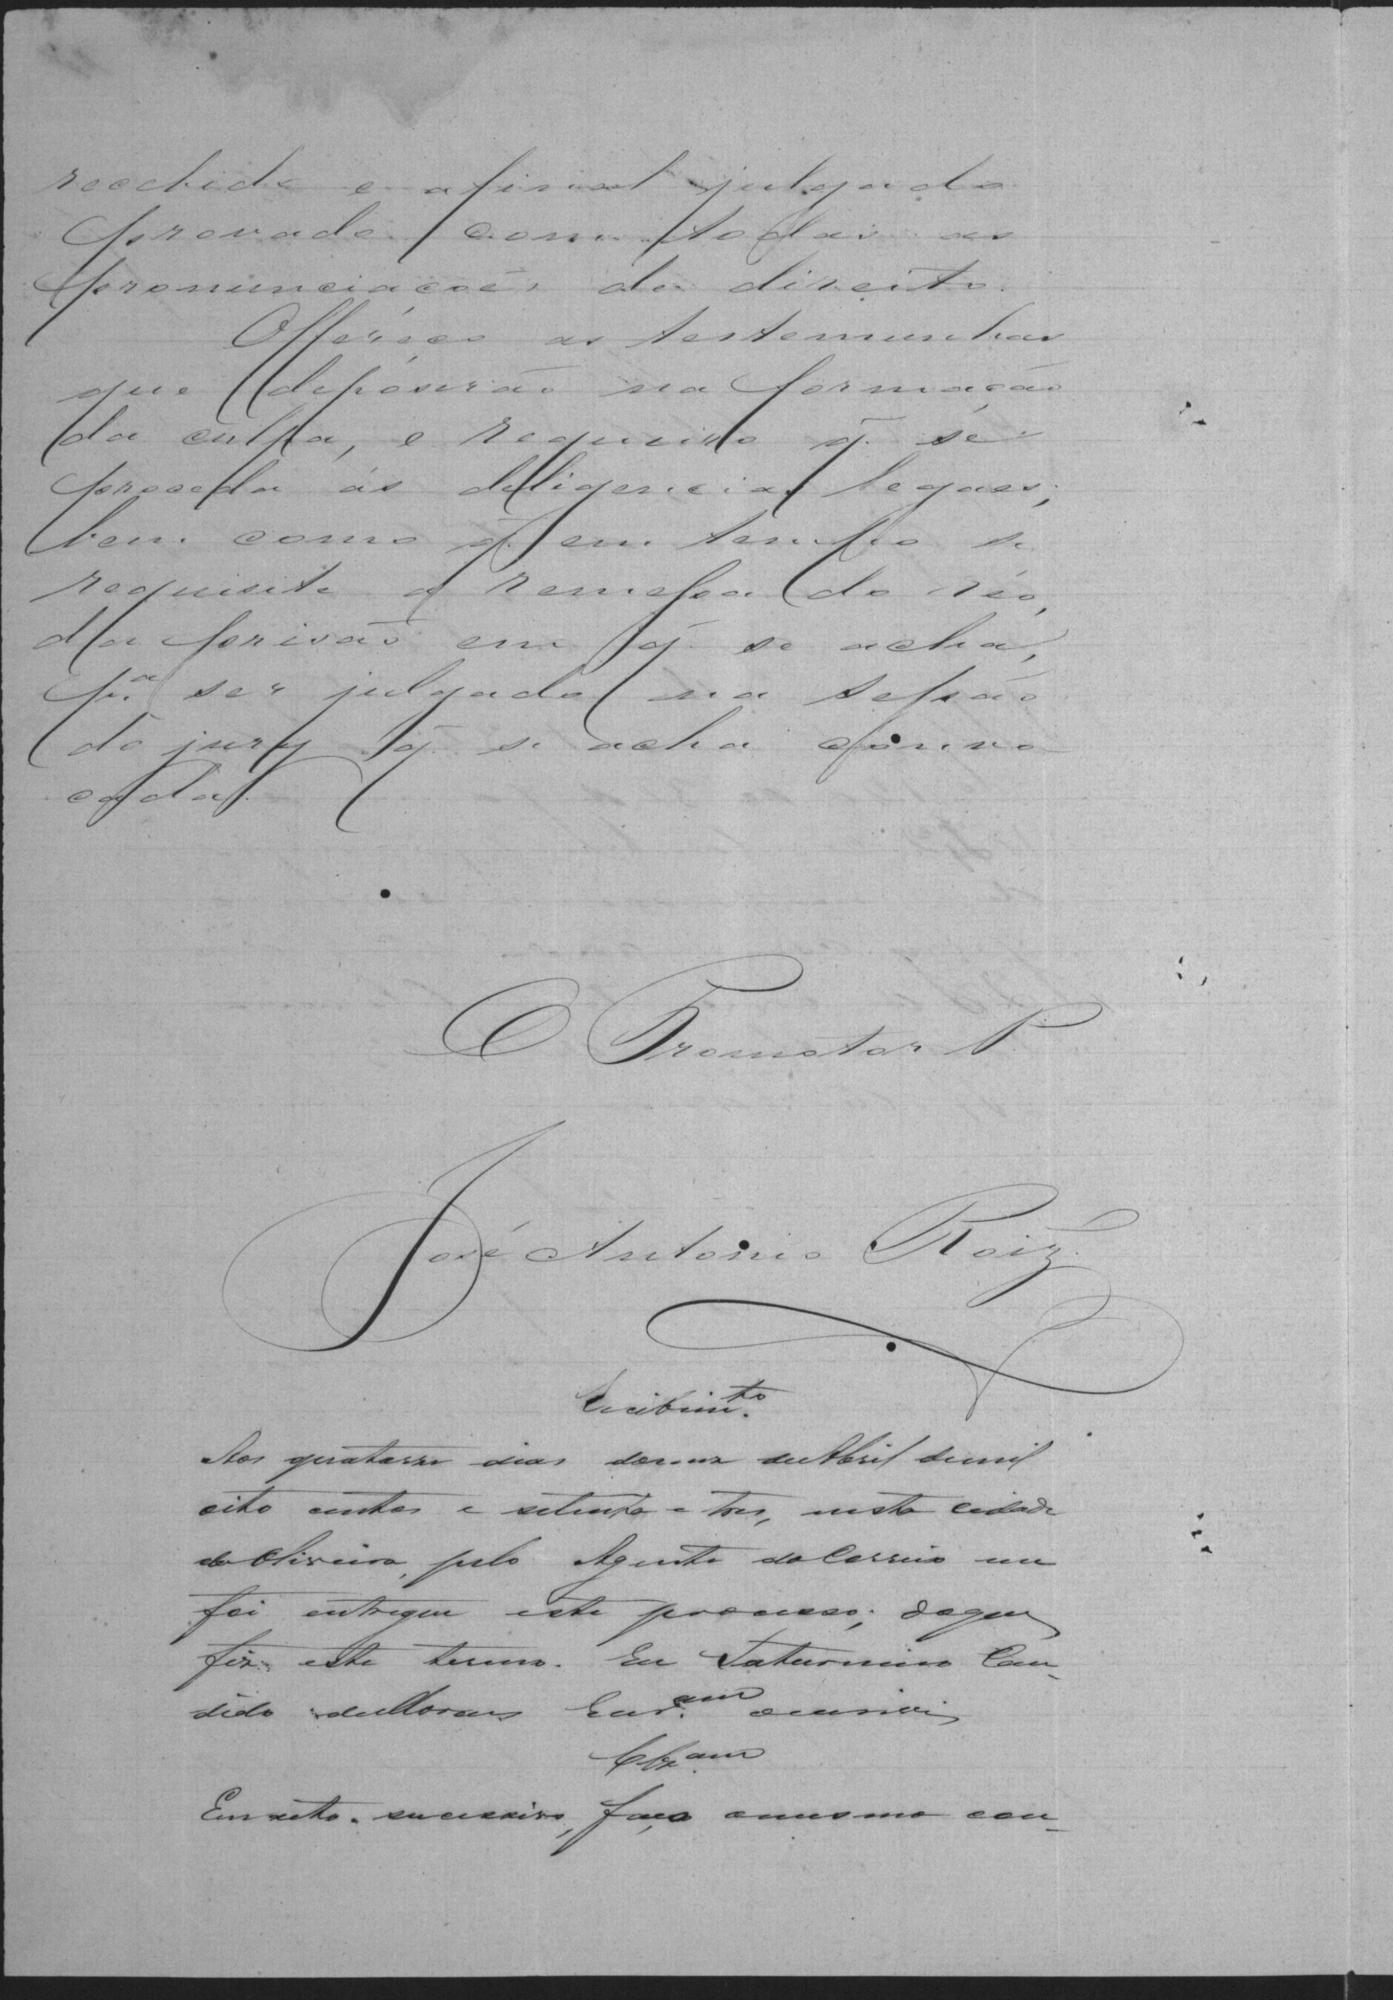 recebido e afinal julgado
provado com todas as
pronunciações de direito.
Offereço as testemunhas
que depóserão na formação
da culpa, e requeiro q̃. se
proceda ás deligencias legaes;
bem como q̃. em tempo se
requisite a remessa do réo,
da prisão em q̃. se acha,
p.ª ser julgado na sessão
do jury q̃. se acha convo
cada.
O Promotor P.
José Antonio Roiz.
Recibim.to
Aos quatorze dias do mez de Abril de mil
oito centos e setenta e tres, nesta cidade
da Oliveira, pelo Agente do Correio me
foi entregue este processo; do que
fiz este termo. Eu Saturnino Can-
dido de Moraes Escr.am o escrevi
Clz.am
Em acto successivo, faço o mesmo con-